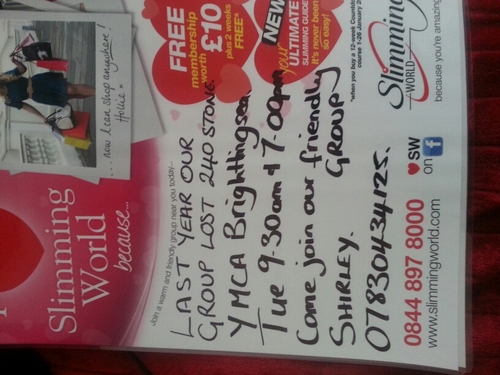 Slimming
World
because...
... now I can shop anywhere!
Hollie
FREE
membership
worth
£10
plus 2 weeks
FREE*
NEW
your
ULTIMATE
SLIMMING GUIDE
It's never been
so easy!
*when you buy a 12-week Countdown
Slimming
WORLD
because you're amazing
Join a warm and friendly group near you today–
LAST YEAR OUR
GROUP LOST 240 STONE
YMCA Brightlingsea
Tue 9.30am & 7.00pm
Come join our friendly
SHIRLEY. GROUP
07830434125.
0844 897 8000
SW
on f
www.slimmingworld.com